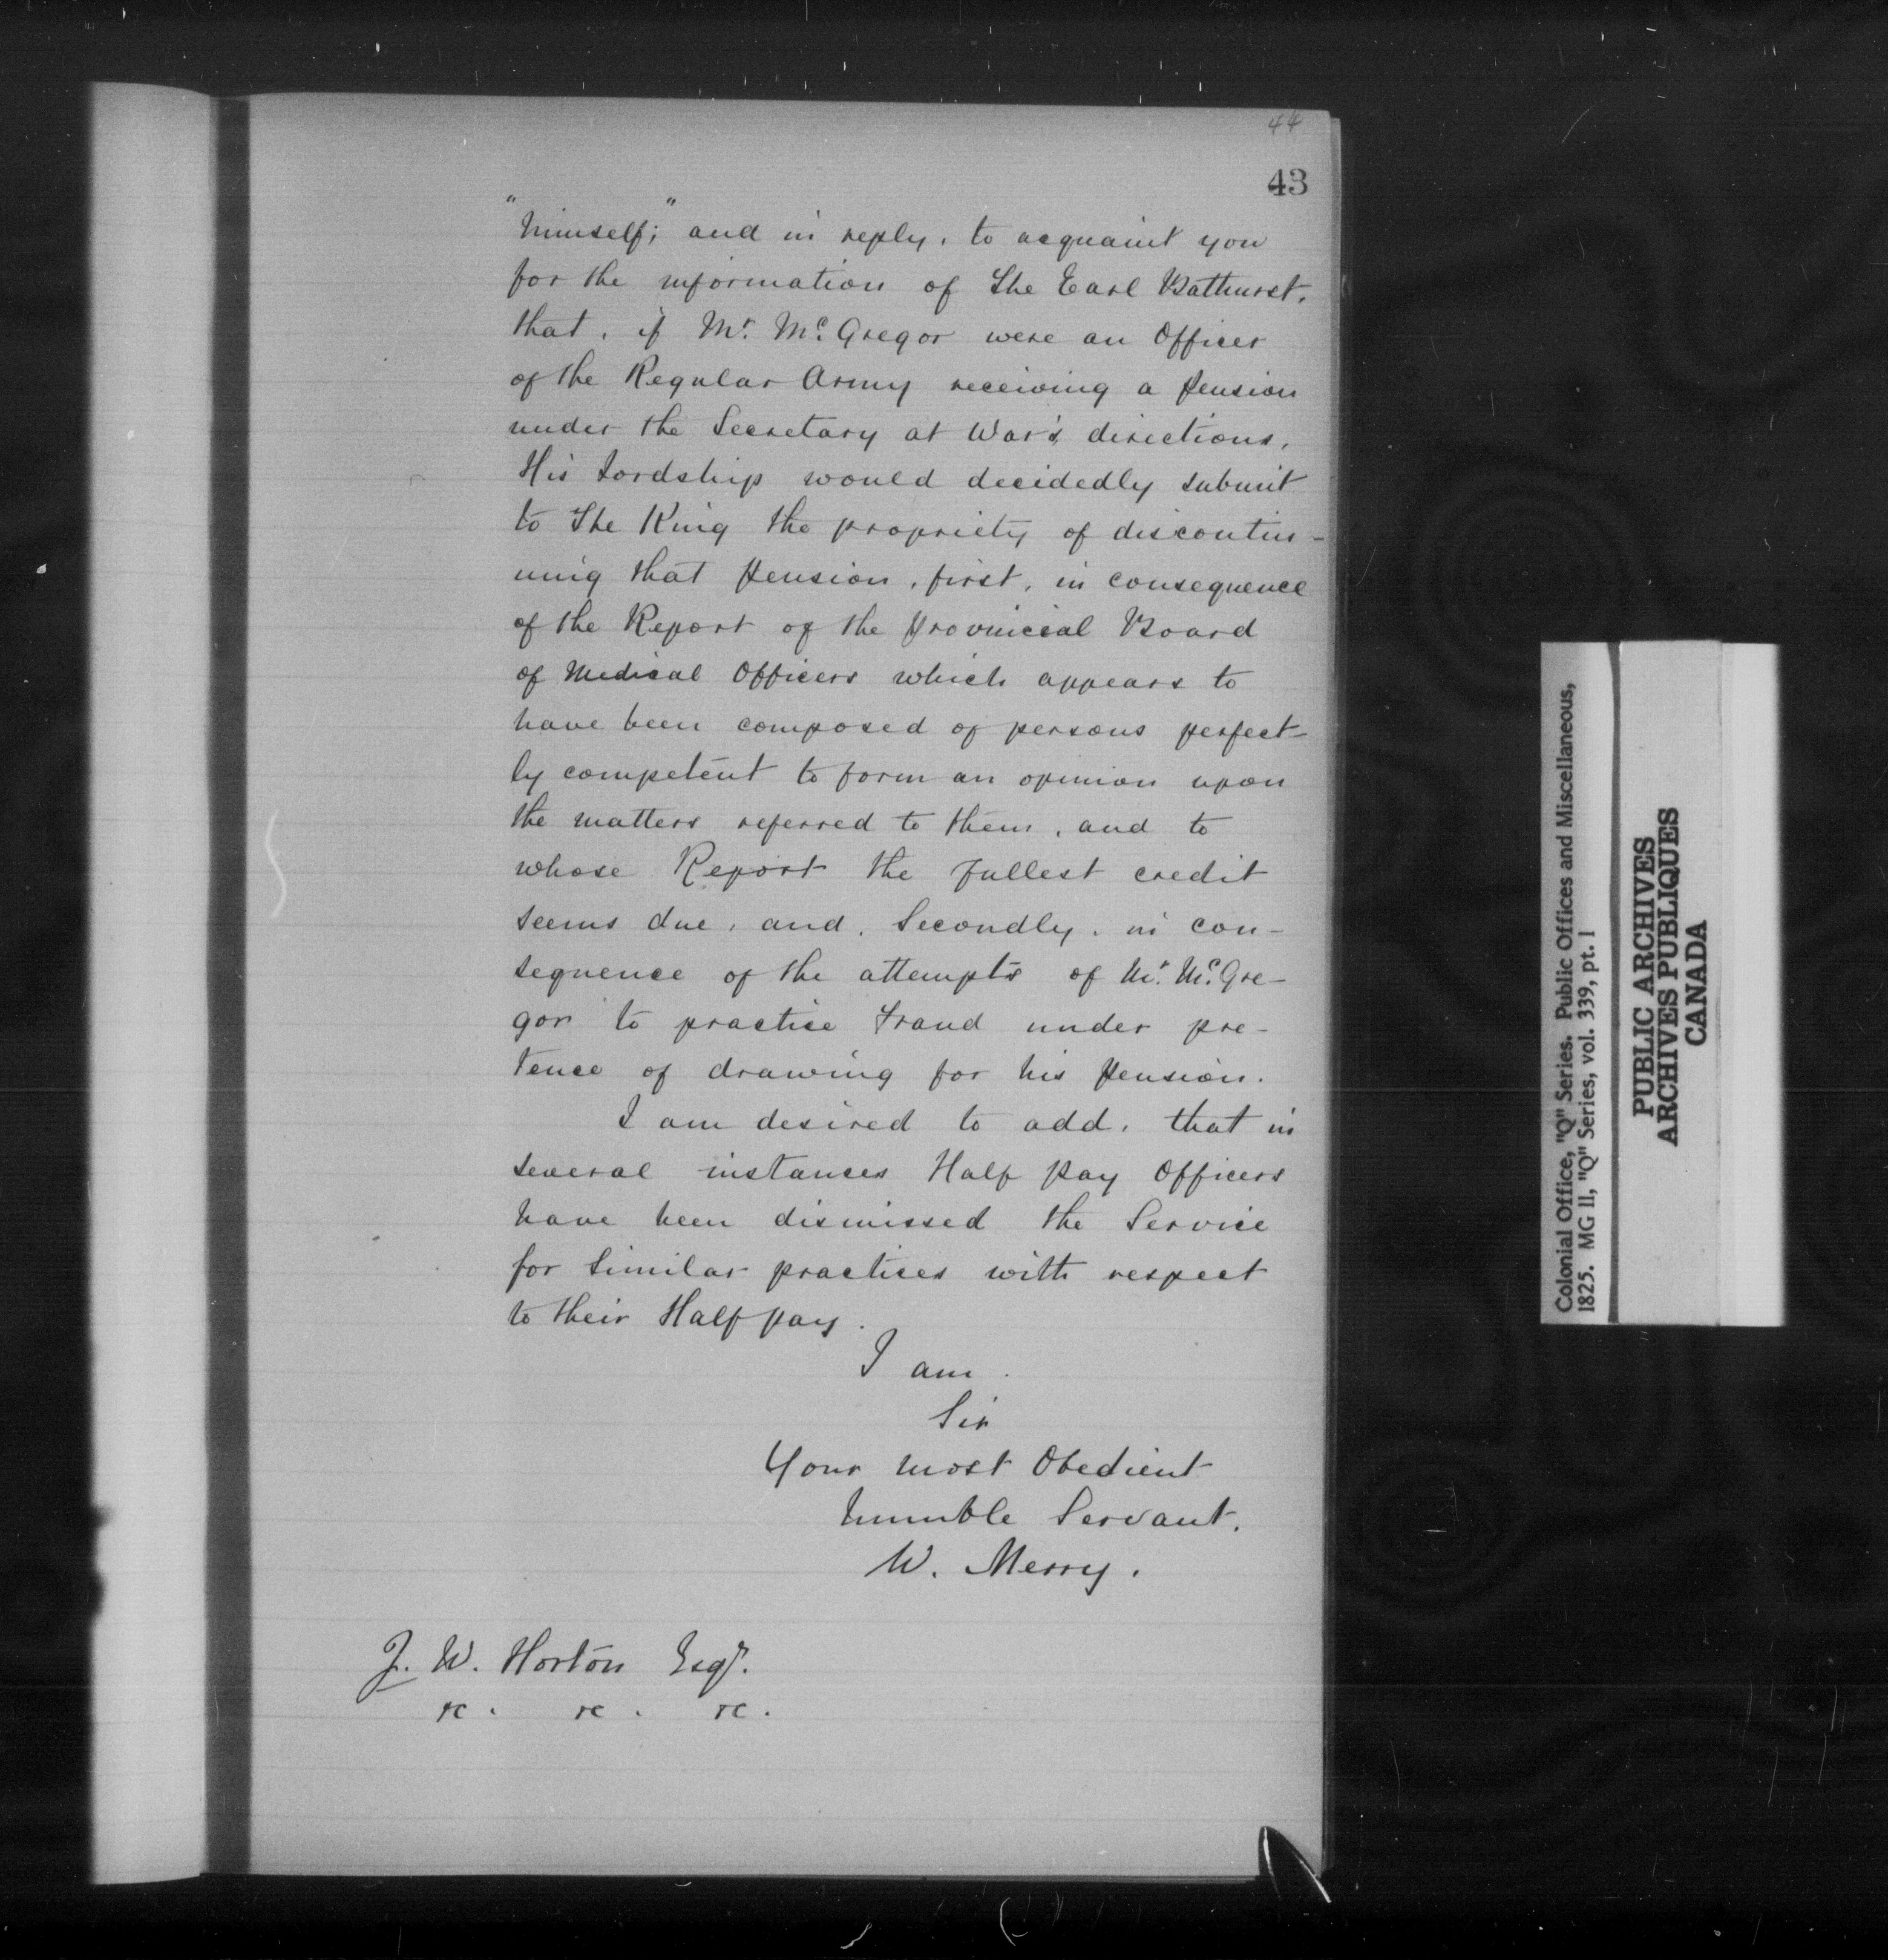 44
43
"himself;" and in reply, to acquaint you
for the information of The Earl Bathurst,
that, if Mr. McGregor were an Officer
of the Regular Army receiving a pension
under the Secretary at War's directions,
His Lordship would decidedly submit
to The King the propriety of discontin-
uing that pension, first, in consequence
of the Report of the provincial Board
of Medical Officers which appears to
have been composed of persons perfect-
ly competent to form an opinion upon
the matters referred to them, and to
whose Report the fullest credit
seems due, and, Secondly, in con-
sequence of the attempts of Mr. McGre-
gor to practice fraud under pre-
tence of drawing for his pension.
I am desired to add, that in
several instances Half pay Officers
have been dismissed the Service
for similar practices with respect
to their Half pay.
I am
Sir
Your most Obedient
humble Servant.
W. Merry.
J. W. Horton Esqr.
&c. &c. &c.
Colonial Office, "Q" Series. Public Offices and Miscellaneous,
1825. MG 11, "Q" Series, vol. 339, pt. 1
PUBLIC ARCHIVES
ARCHIVES PUBLIQUES
CANADA